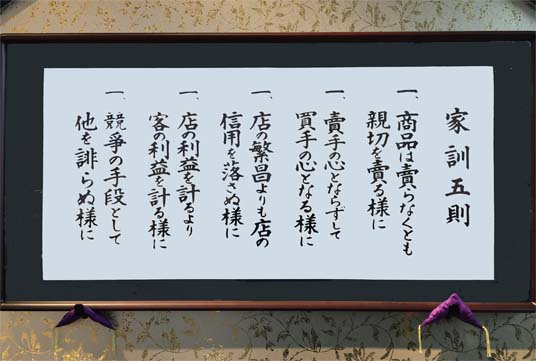 家訓五則
一、商品は賣らなくとも
親切を賣る様に
一、賣手の心とならずして
買手の心となる様に
一、店の繁昌よりも店の
信用を落さぬ様に
一、店の利益を計るより
客の利益を計る様に
一、競爭の手段として
他を誹らぬ様に